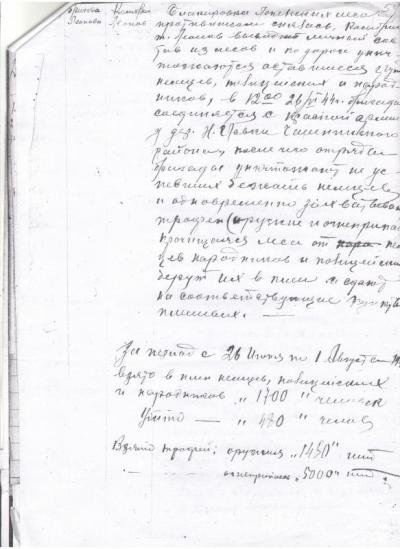 противником снялась,
т. Леонов выводит личный сос-
тав из лесов и по дороге унич-
тожаются оставшиеся группы
немцев, полицейских и народ-
ников, в 1200 26/VI 44г. бригада
соединяется с Красной армией
у дер. Н. Чашникского
района, после чего отряды
бригады уничтожают не ус-
певших бежать немцев
и одновременно захватывают
трофеи (оружие и боеприпасы
леса от нем-
цев народников и полицейских
берут их в плен и сдают
на соответствующие пункты
пленных. —
За период с 26 Июня по 1 Августа
взято в плен немцев, полицейских
и народников „ 1700 " человек
Убито — „ 470 " челов
Взято трофей: оружия „1450" шт
— боеприпасов „5000" шт